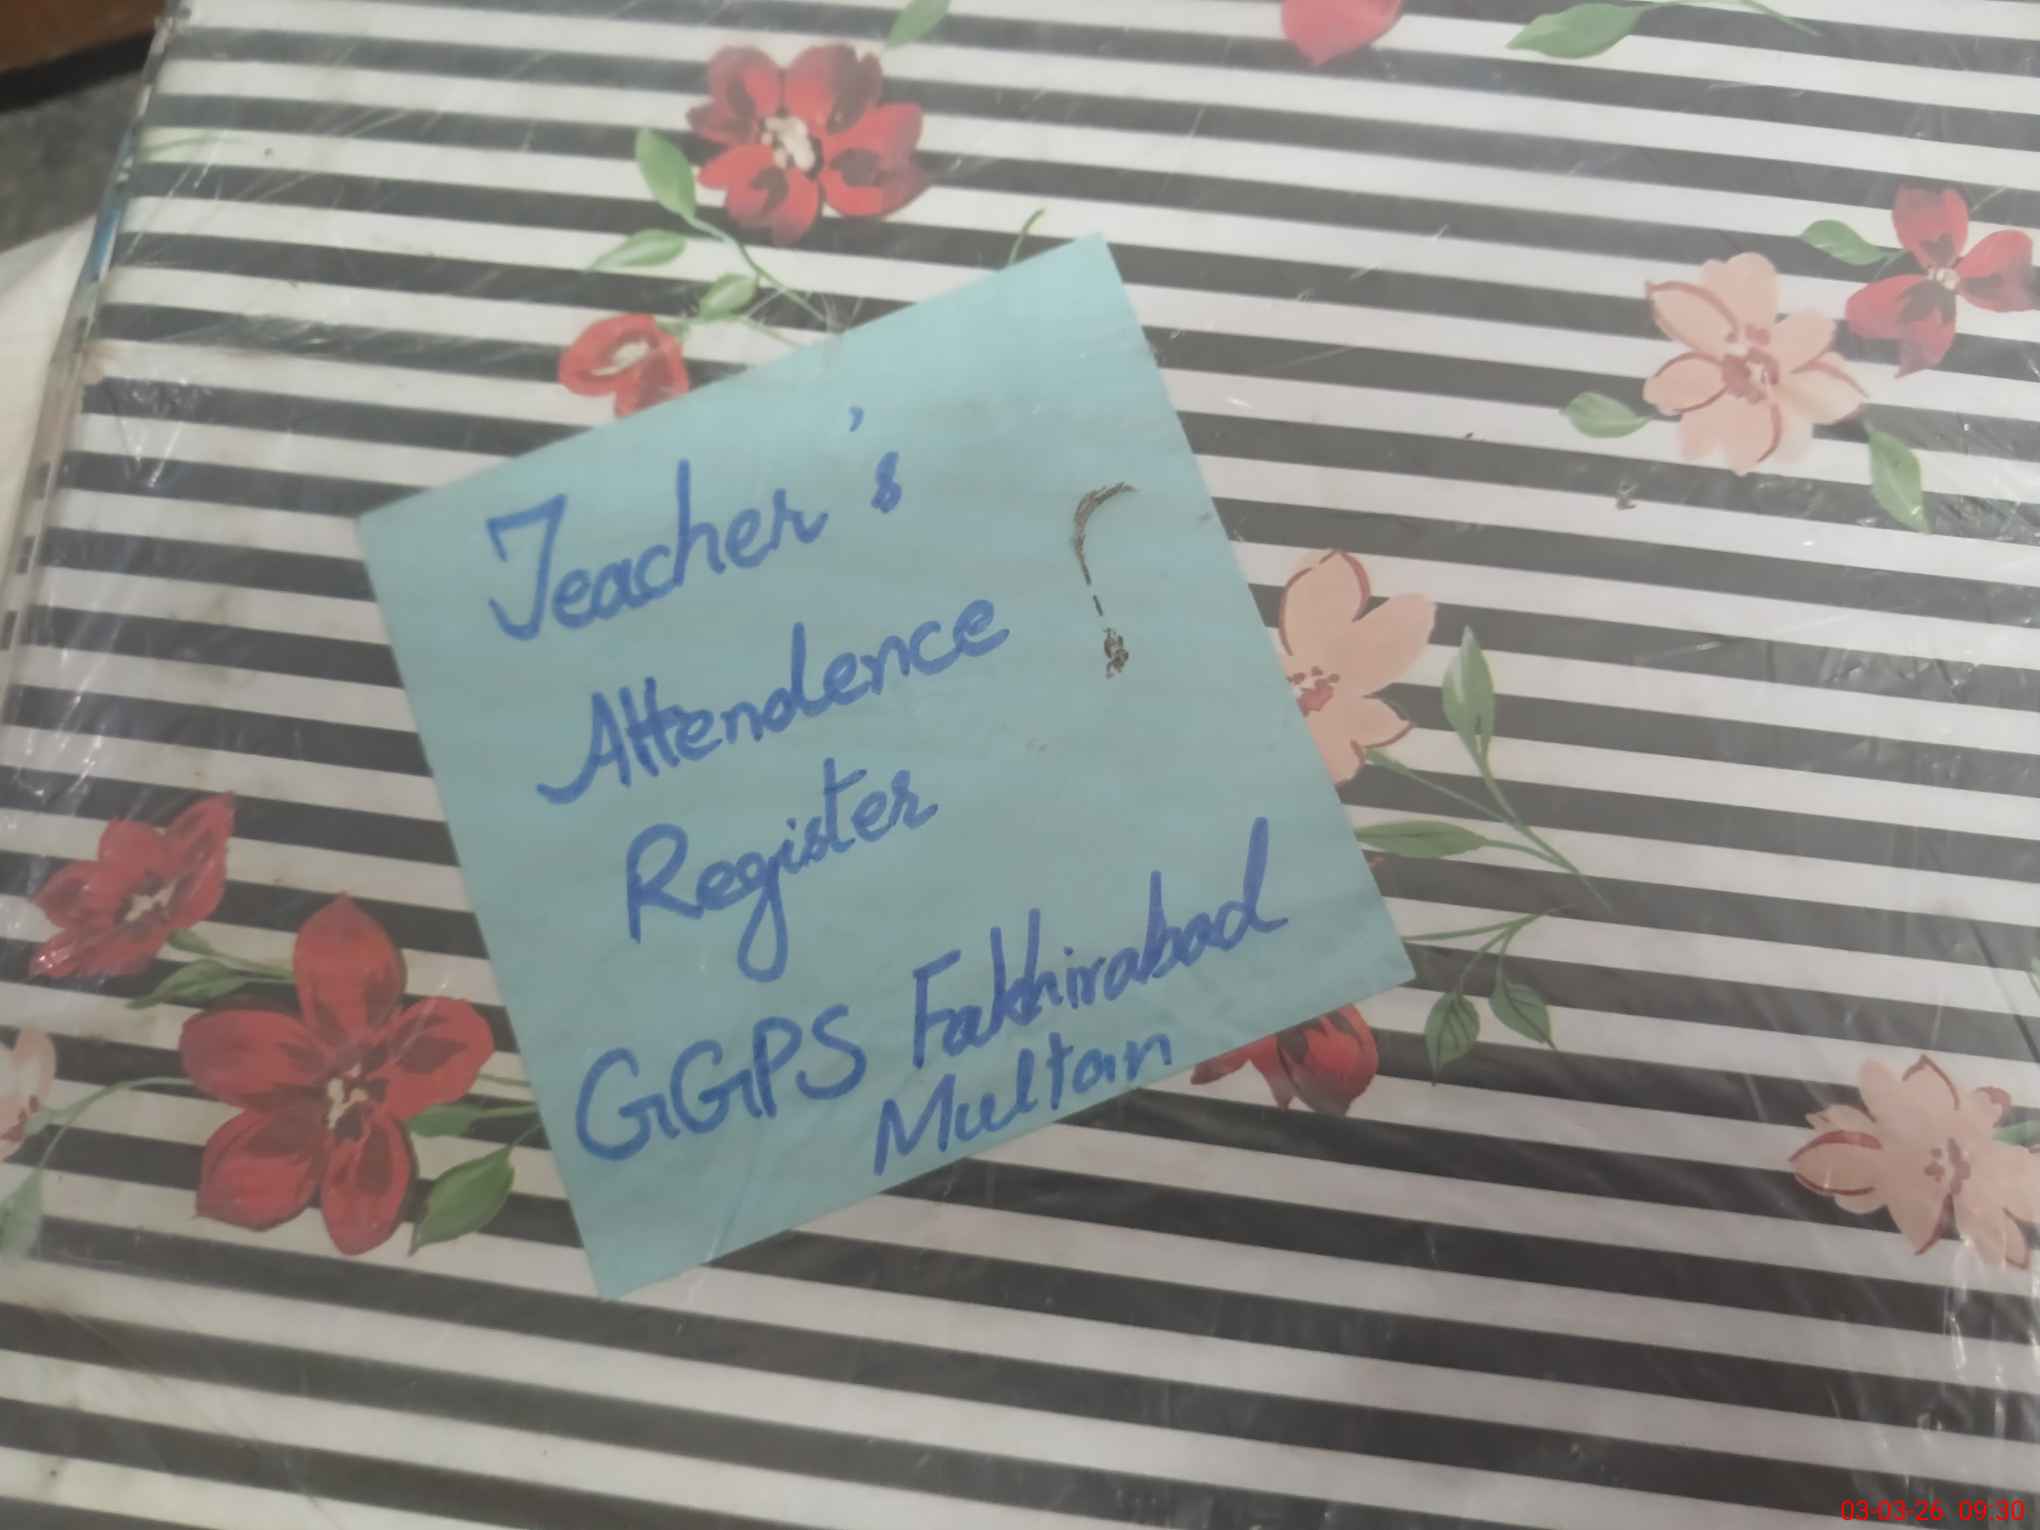 Teacher's
Attendence
Register
GGPS Fakhirabad
Multan
03-03-26 09:30